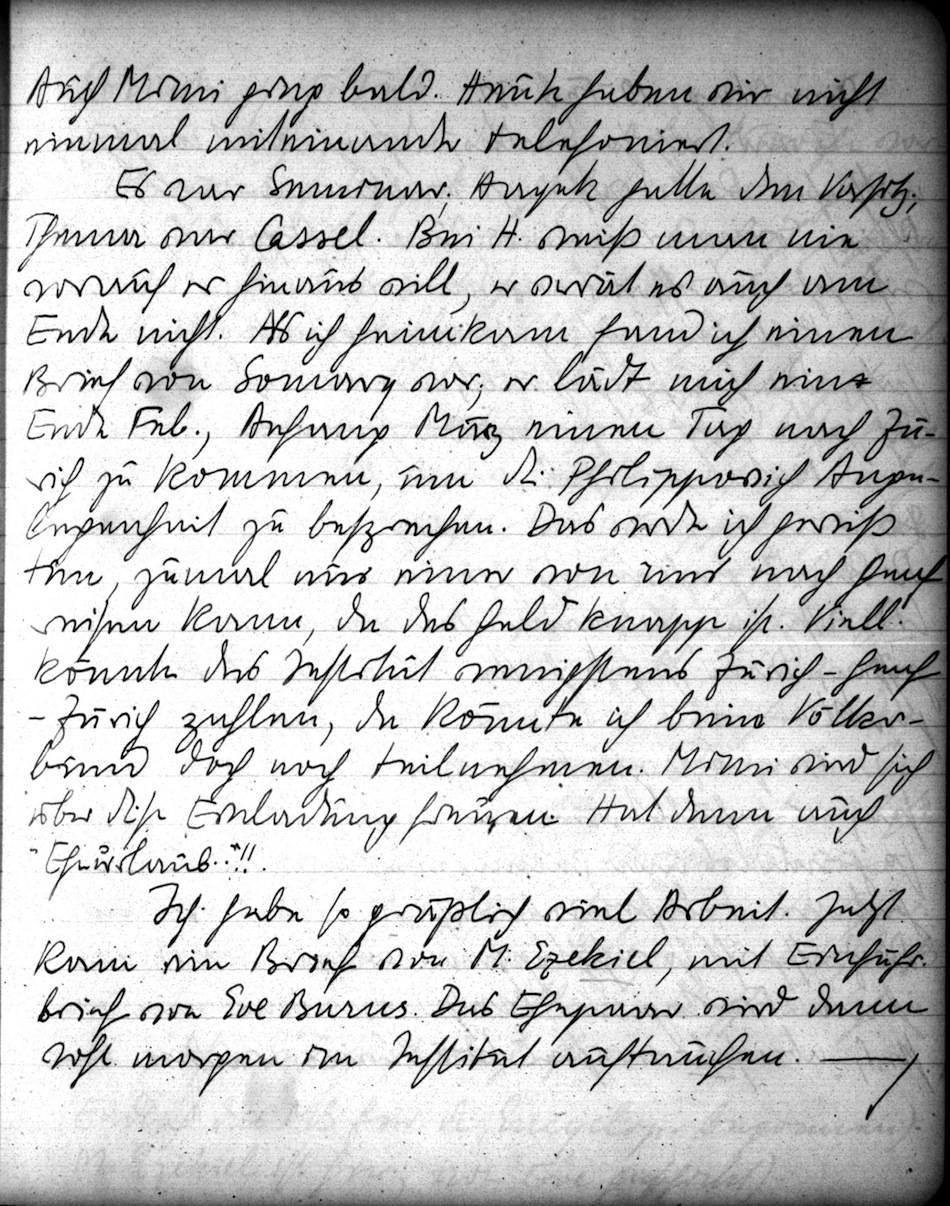 Auch Mimi ging bald. Heute haben wir nicht
einmal miteinander telefoniert.
Es war Seminar; Hayek hatte den Vorsitz;
Thema war Cassel. Bei H. weiß man nie
worauf er hinaus will, er verrät es auch am
Ende nicht. Als ich heimkam fand ich einen
Brief von Somary vor; er lädt mich ein
Ende Feb., Anfang März einen Tag nach Zü-
rich zu kommen, um die Philippovich Ange-
legenheit zu besprechen. Das werde ich gewiß
tun, zumal nur einer von uns nach Genf
reisen kann, da das Geld knapp ist. Viell.
könnte das Institut wenigstens Zürich - Genf
- Zürich zahlen, da könnte ich beim Völker-
bund doch noch teilnehmen. Mimi wird sich
über diese Einladung freuen. Hat dann auch
"Ehurlaub.."!!.
Ich habe so gräßlich viel Arbeit. Jetzt
kam ein Brief von M. Ezekiel, mit Einführ.
brief von Eve Burns. Das Ehepaar wird dann
wohl morgen im Institut auftauchen. —